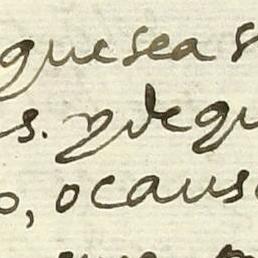 que sea s
s. y de qu
o, o caus